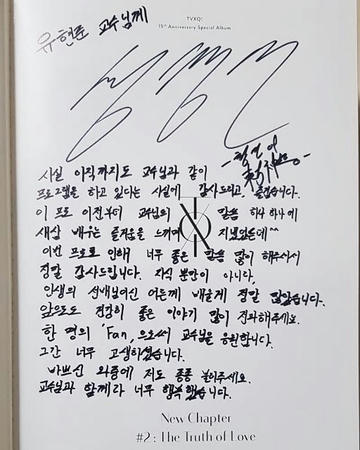 유현준 교수님께
TVXQ!
15th Anniversary Special Album
사실 아직까지도 교수님과 같이
프로그램을 하고 있다는 사실에 감사드리고, 즐겁습니다.
이 프로 이전부터 교수님의 말씀 하나 하나에
새삼 배우는 즐거움을 느끼며 지냈었는데^^
이번 프로로 인해 너무 좋은 말씀 많이 해주셔서
정말 감사드립니다. 지식 뿐만이 아니라,
인생의 선배님이신 어른께 배울게 정말 많았습니다.
앞으로도 건강히 좋은 이야기 많이 전파해주세요.
한 명의 'Fan'으로써 교수님을 응원합니다.
그간 너무 고생하셨습니다.
바쁘신 와중에 저도 종종 불러주세요.
교수님과 함께라 너무 행복했습니다.
New Chapter
#2 : The Truth of Love